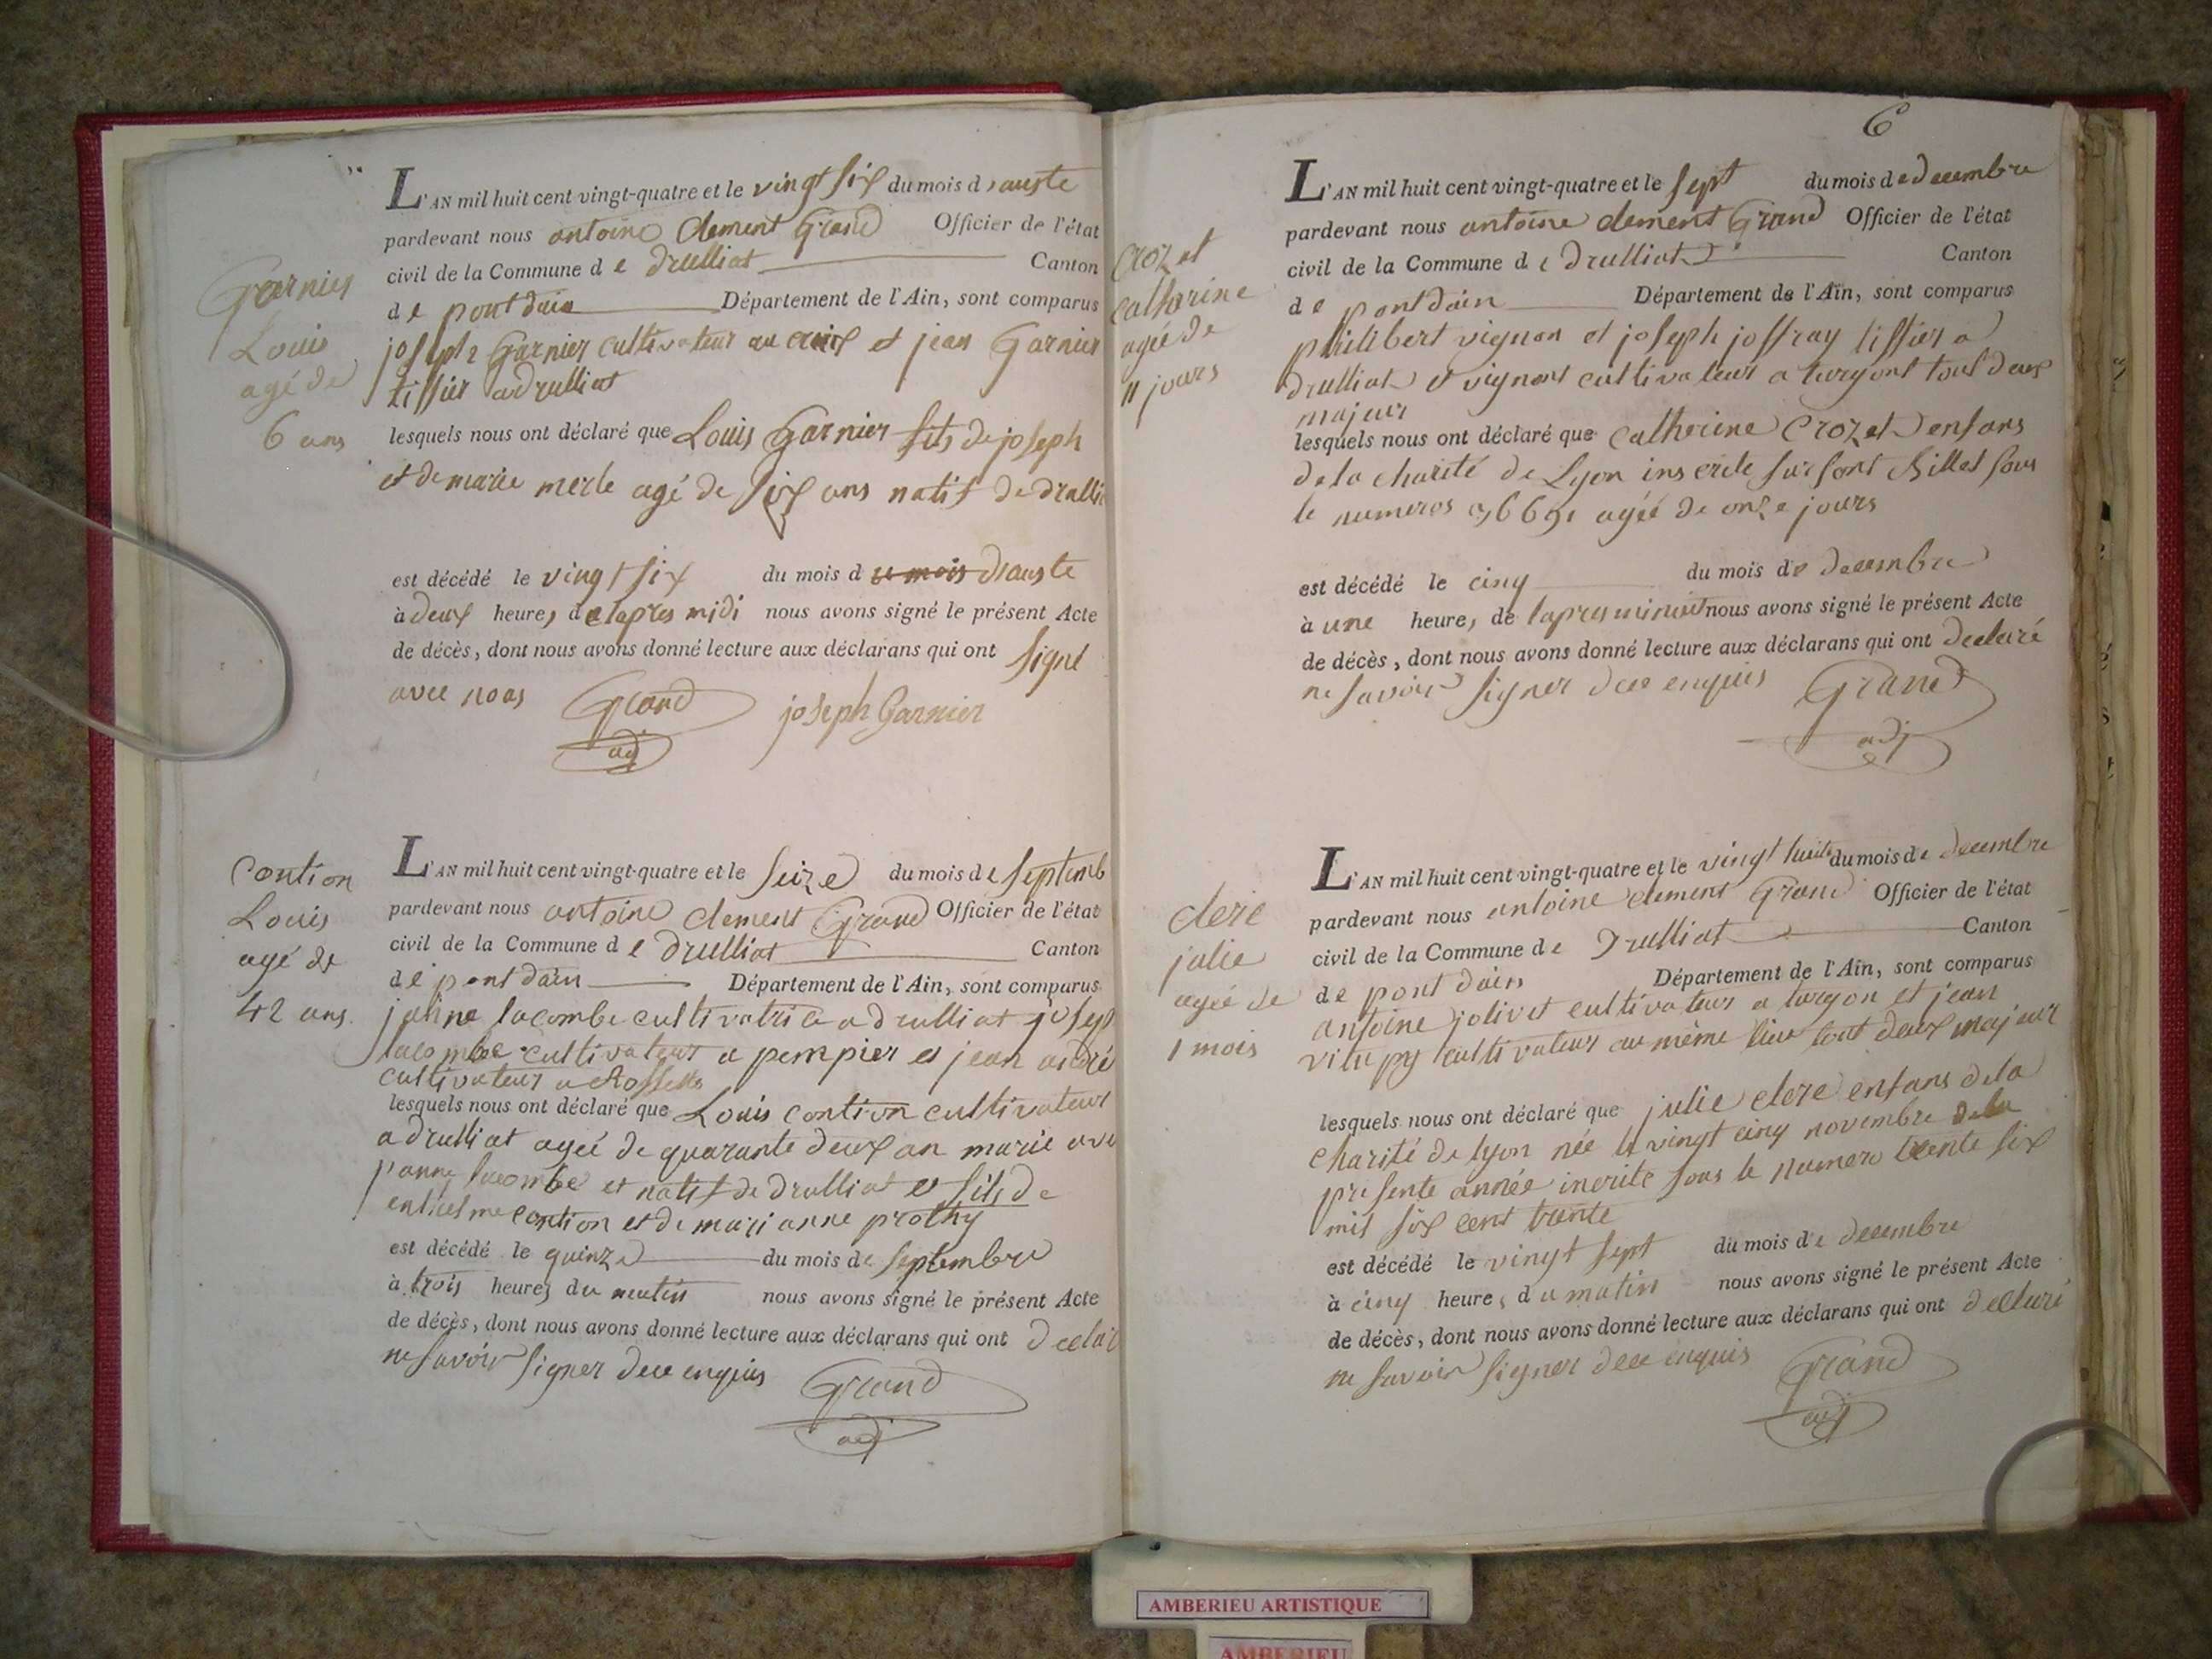 L'AN mil huit cent vingt-quatre et le vingt six du mois d'auste
pardevant nous antoine Clement Grand Officier de l'état
civil de la Commune de drulliat Canton
de pont dain Département de l'Ain, sont comparus
joseph Garnier cultivateur au et jean Garnier
tissier a drulliat
lesquels nous ont déclaré que Louis Garnier fils de joseph
et de marie merle agé de six ans natif de drullia
est décédé le vingt six du mois d ce mois d'auste
à deux heures de lapres midi nous avons signé le présent Acte
de décès, dont nous avons donné lecture aux déclarans qui ont signé
avec nous Grand joseph Garnier
adj
Garnier
Louis
agé de
6 ans
L'AN mil huit cent vingt-quatre et le seize du mois de septemb
pardevant nous antoine clement Grand Officier de l'état
civil de la Commune de drulliat Canton
de pont dain Département de l'Ain, sont comparus
janne lacombe cultivatrice a drulliat josep
lacombe cultivateur a pempier et jean andré
cultivateur a Rossettes
lesquels nous ont déclaré que Louis contion cultivateur
a drulliat agée de quarante deux an marié ave
janne lacombe et natif de drulliat et fils de
contion et de mari anne prothy
est décédé le quinze du mois de septembre
à trois heures du matin nous avons signé le présent Acte
de décès, dont nous avons donné lecture aux déclarans qui ont declar
ne savoir signer dece enquis Grand
adj
Contion
Louis
agé de
42 ans.
6
L'AN mil huit cent vingt-quatre et le sept du mois de decembre
pardevant nous antoine clement Grand Officier de l'état
civil de la Commune de drulliat Canton
de pont dain Département de l'Ain, sont comparus
philibert vignon et joseph joffray tissier a
drulliat et vignont cultivateur a turgont tout deux
majeur
lesquels nous ont déclaré que catherine Crozet enfans
de la charité de Lyon inscrite sur sont Billet sous
le numeros agée de onze jours
est décédé le cinq du mois de decembre
à une heure, de lapres minuit nous avons signé le présent Acte
de décès, dont nous avons donné lecture aux déclarans qui ont declaré
ne savoir signer dece enquis Grand
adj
Crozet
catherine
agée de
11 jours
L'AN mil huit cent vingt-quatre et le vingt huit du mois de decembre
pardevant nous antoine clement Grand Officier de l'état
civil de la Commune de Drulliat Canton
de pont dain Département de l'Ain, sont comparus
antoine jolivet cultivateur a turgon et jean
vitupy cultivateur au même lieu tout deux majeur
lesquels nous ont déclaré que julie clere enfans de la
charité de lyon née le vingt cinq novembre de la
presente année incrite sous le numero trente six
mil six cent trente
est décédé le vingt sept du mois de decembre
à cinq heures du matin nous avons signé le présent Acte
de décès, dont nous avons donné lecture aux déclarans qui ont declaré
ne savoir signer dece enquis Grand
adj
clere
julie
agée de
1 mois
AMBERIEU ARTISTIQUE
AMBERIEU